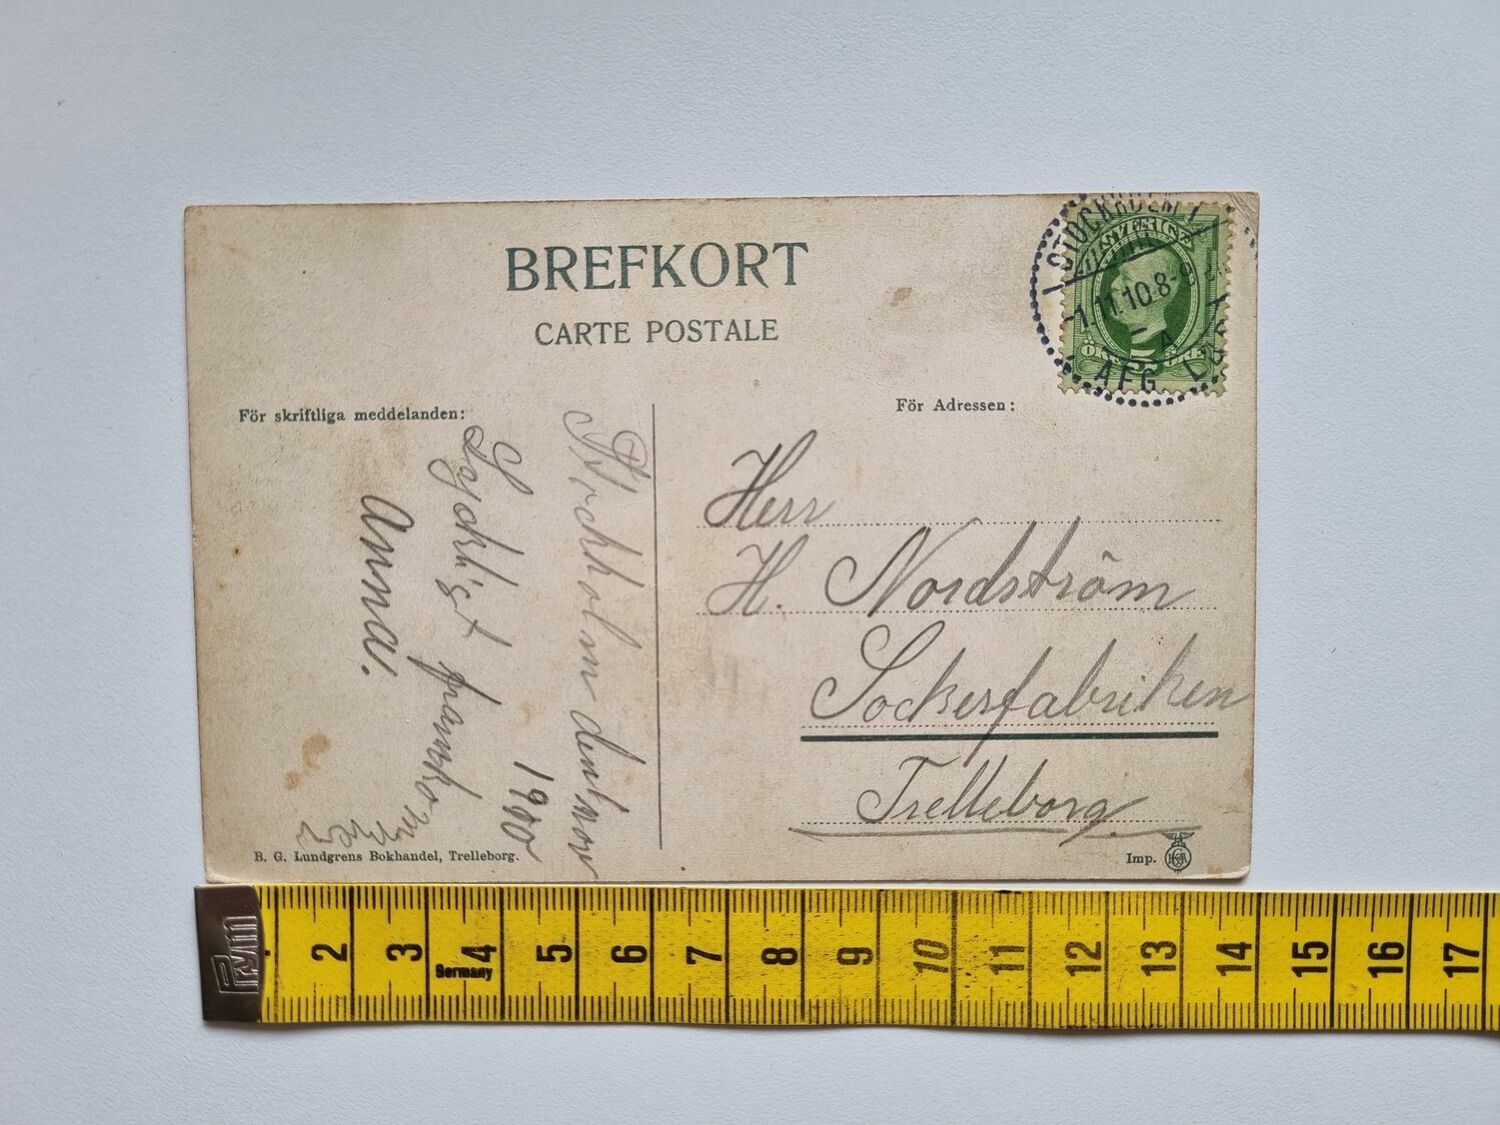 BREFKORT
CARTE POSTALE
För skriftliga meddelanden:
För Adressen:
STOCKHOLM 1
-1.11.10.8-9
A
AFG
SVERIGE
ÖRE 5 ÖRE
Stockholm den 1 nov
1910
Lyckligt framkom
Anna.
Herr
H. Nordström
Sockerfabriken
Trelleborg
B. G. Lundgrens Bokhandel, Trelleborg.
Imp.
Prym
2 3 4 5 6 7 8 9 10 11 12 13 14 15 16 17
Germany